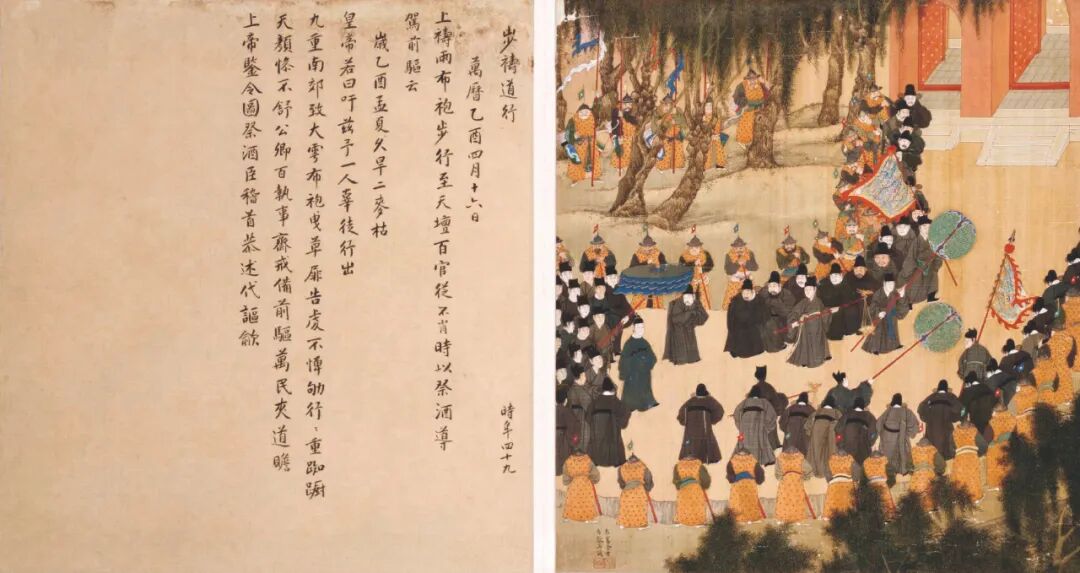 步禱道行
時年四十九
萬曆乙酉四月十六日
上禱雨布袍步行至天壇百官從不肖時以祭酒導
駕前驅云
歲乙酉孟夏久旱二麥枯
皇帝若曰吁茲予一人辜徒行出
九重南郊致大雩布袍曳草屝告虔不憚劬行〻重跏蹰
天顏慘不舒公卿百執事齋戒備前驅萬民夾道瞻
上帝鑒令圖祭酒臣稽首恭述代謳歈